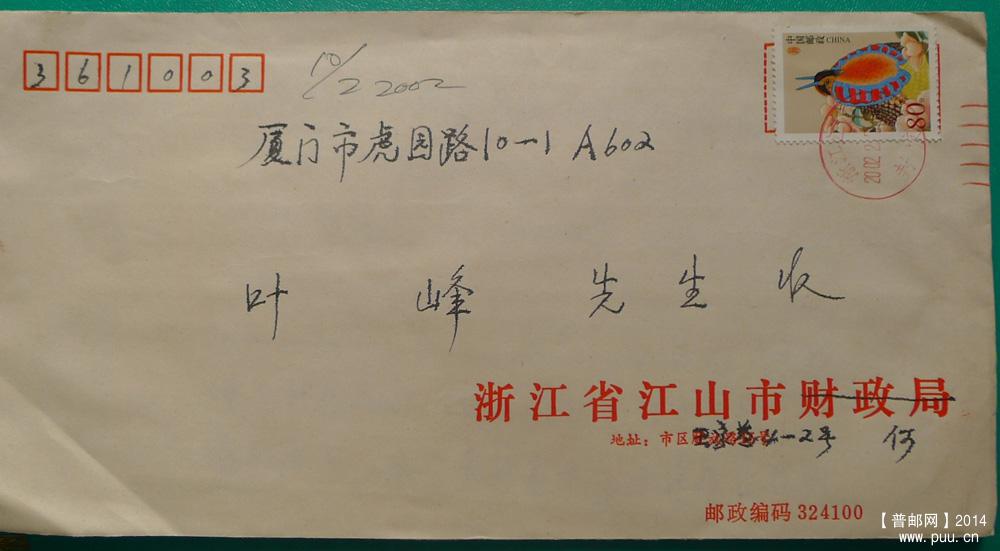 361003
10/2 2002
中国邮政 CHINA
80
厦门市虎园路10-1 A602
浙江
2002 02 2
叶峰先生收
浙江省江山市财政局
地址：市区
-2号 何
邮政编码 324100
【普邮网】2014
www.puu.cn